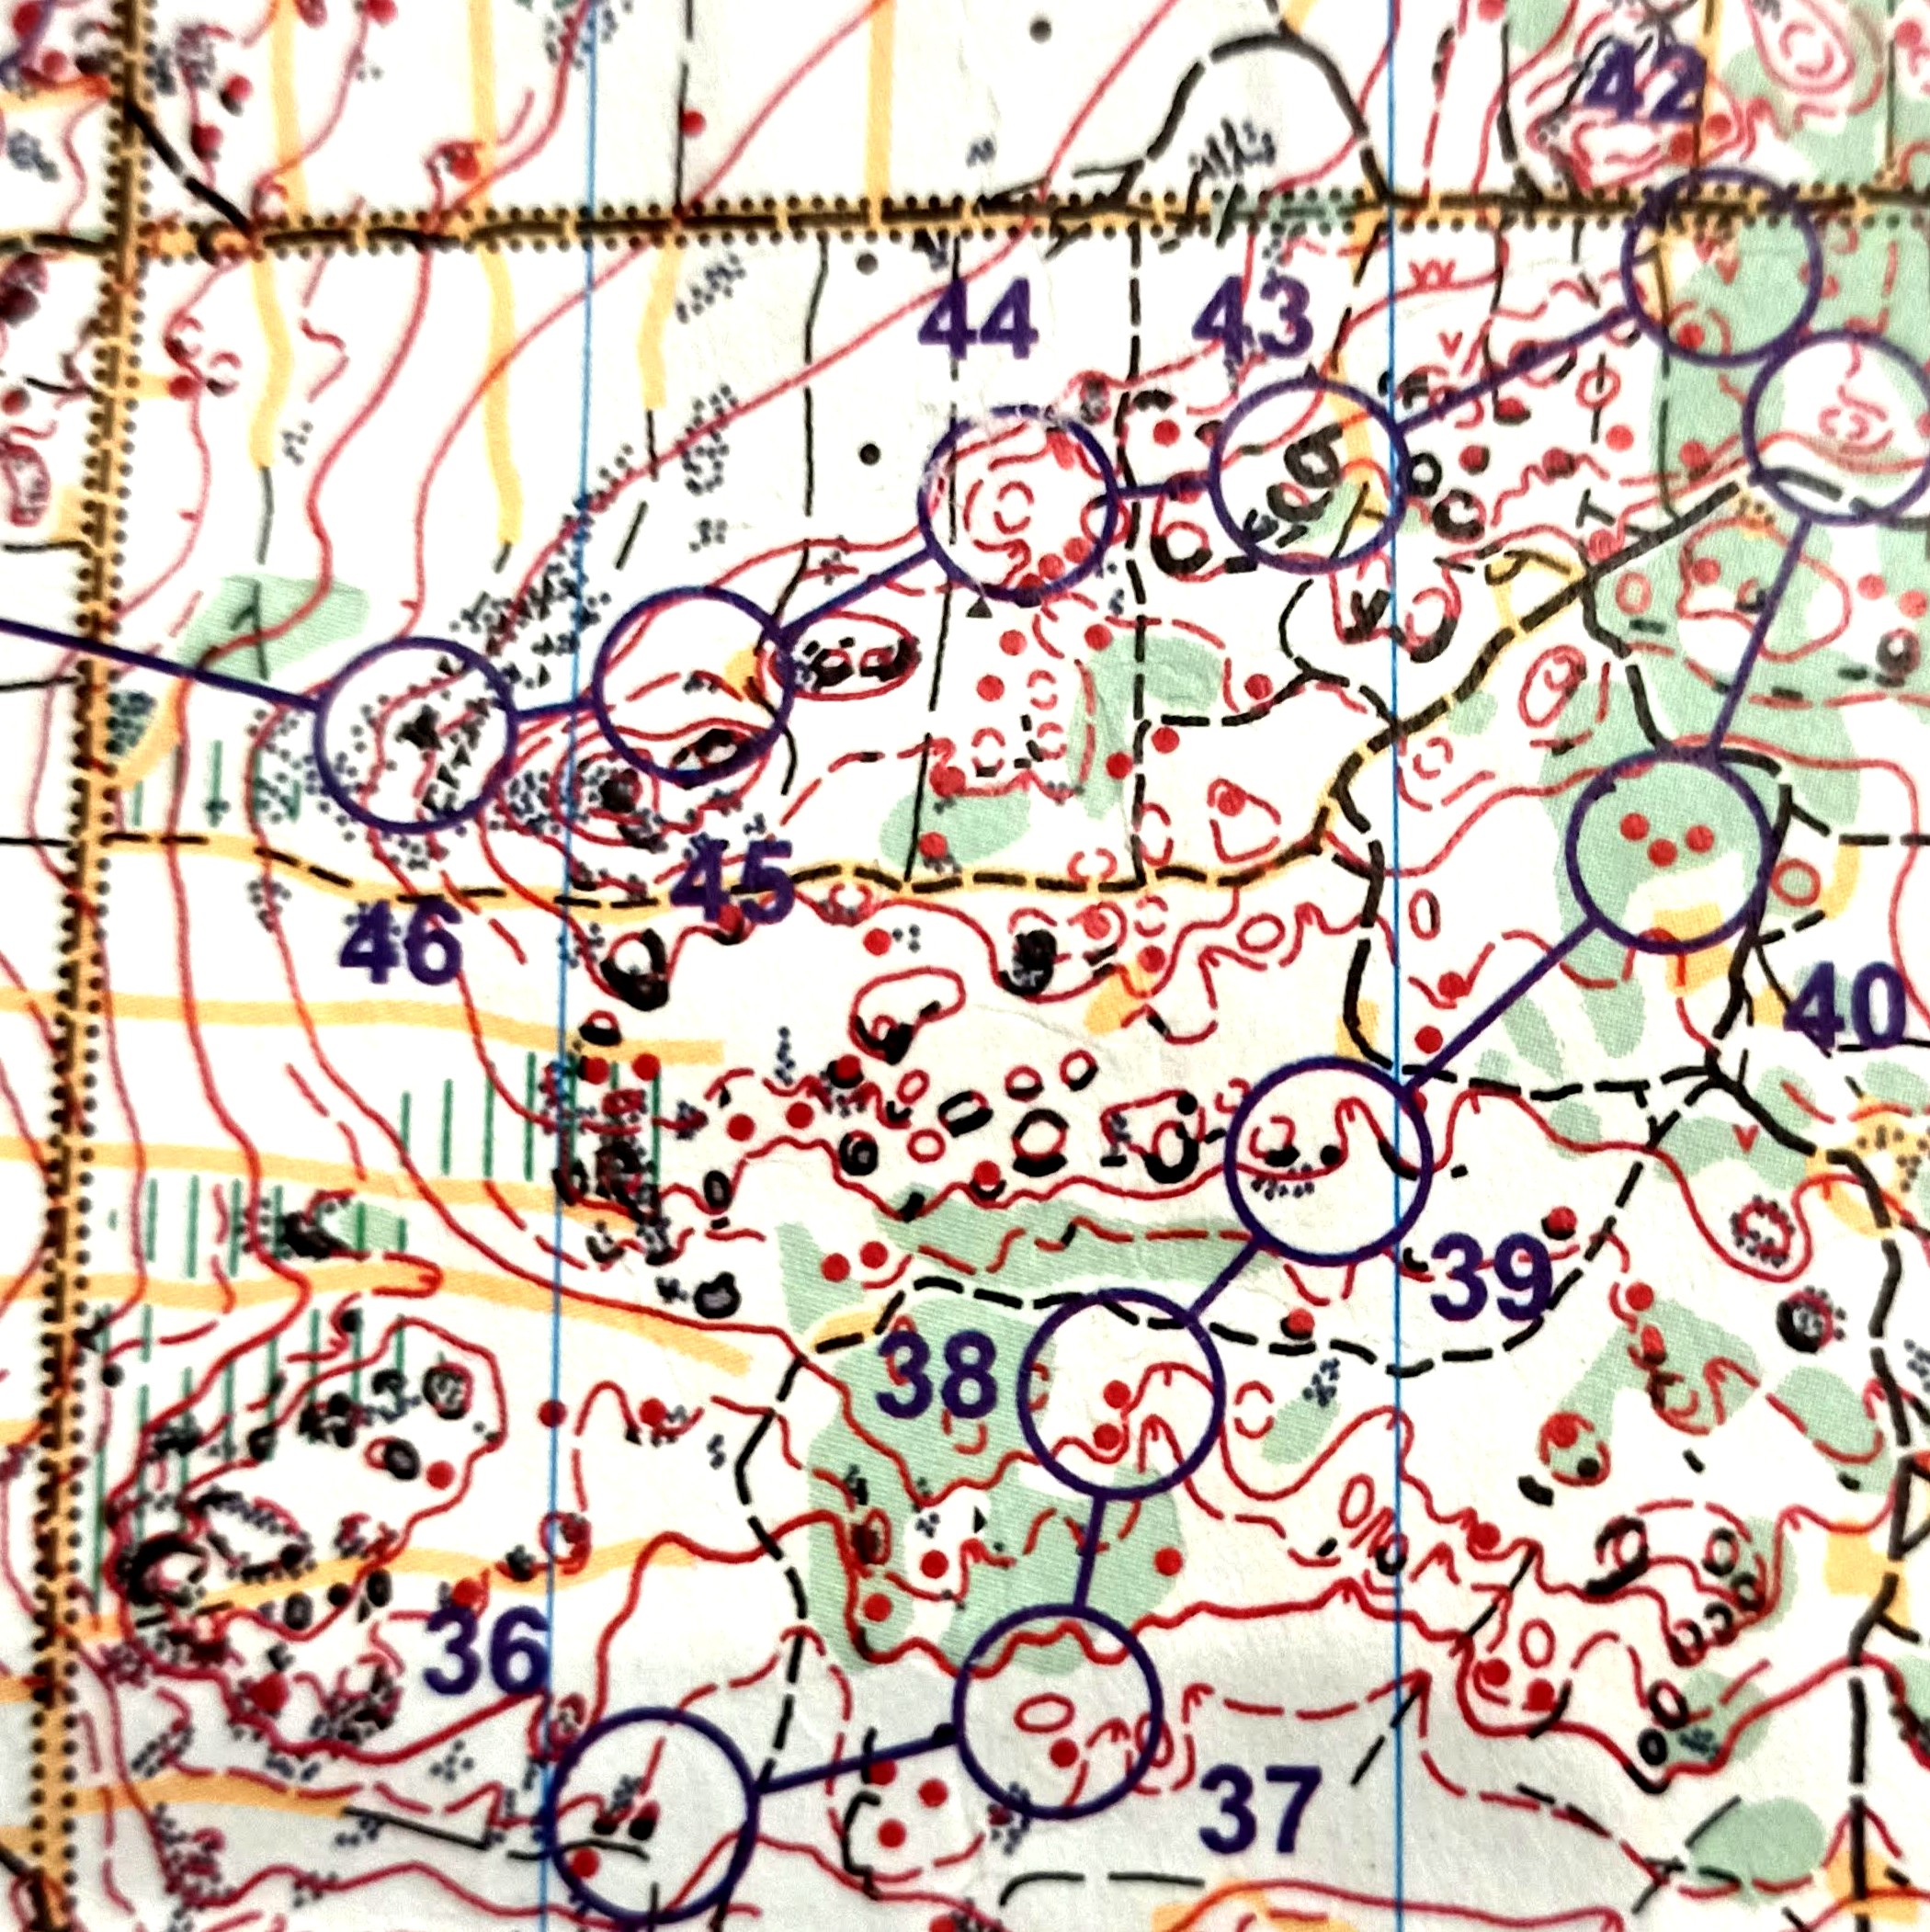 42
44
43
45
46
40
39
38
36
37